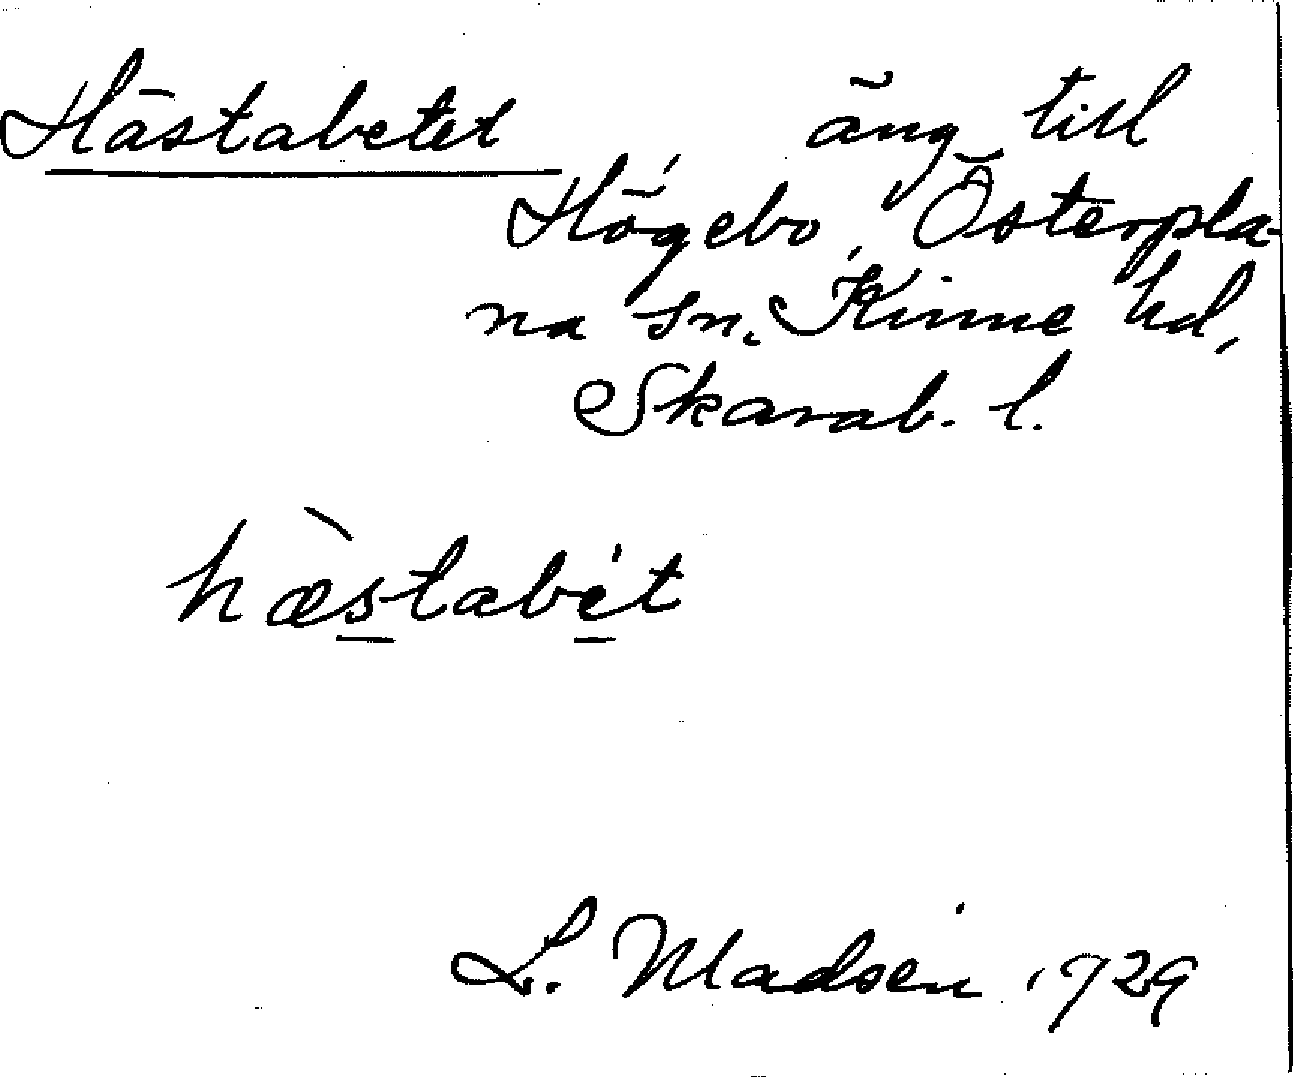 Hästabetet äng till
Högebo, Österpla-
na sn, Kinne hd,
Skarab. l.
hæ̀stabét
L. Madsén 1929